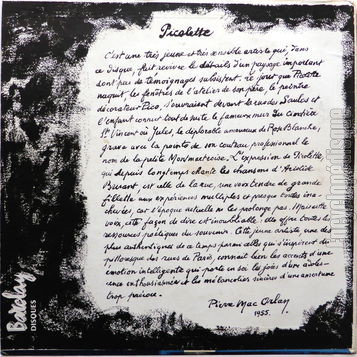 Picolette
C'est une très jeune et très sensible artiste qui, dans
ce disque, fait revivre le détail d'un paysage important
dont peu de témoignages subsistent. Le jour que Picolette
naquit les fenêtres de l'atelier de son père, le peintre
décorateur Pico, s'ouvraient devant la rue des Saules et
l'enfant connut tout de suite le fameux mur du cimetière
St Vincent où Jules, le déplorable amoureux de Rose Blanche,
grava avec la pointe de son couteau professionnel le
nom de la petite Montmartroise. L'expression de Picolette,
qui depuis longtemps chante les chansons d'Aristide
Bruant, est celle de la rue, une voix tendre de grande
fillette aux expériences multiples et presque toutes ina-
chevées, car l'époque actuelle ne les prolonge pas. Mais cette
voix, cette façon de dire est inoubliable: elle offre toutes les
ressources poétiques du souvenir. Cette jeune artiste, une des
plus authentiques de ce temps parmi celles qui s'inspirent du
pittoresque des rues de Paris, connait bien les accents d'une
émotion intelligente qui porte en soi les joies d'une adoles-
cence enthousiasmée et les mélancolies sincères d'une aventure
trop précoce.
Pierre Mac Orlan
1955.
Barclay
DISQUES